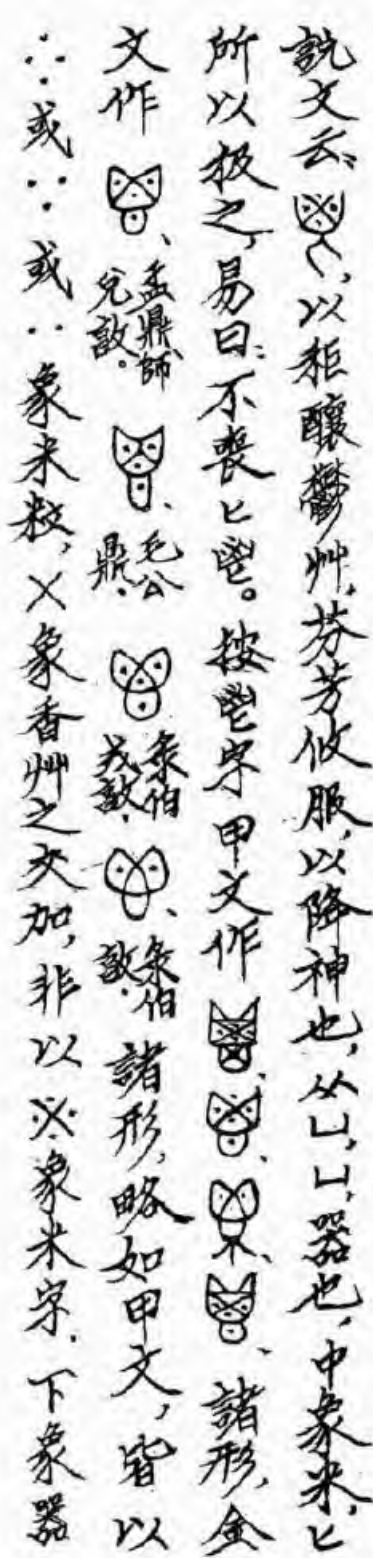 說文云、以秬釀鬱艸,芬芳攸服,以降神也,从凵,凵,器也,中象米,匕
所以扱之,易曰:不喪匕鬯。按鬯字甲文作、、、、諸形,金
文作、盂鼎師兌𣪘。、毛公鼎.、彔伯𢦚𣪘.、彔伯𣪘.諸形,略如甲文,皆以
∴或∵或‥象米粒,乂象香艸之交加,非以※象米字.下象器